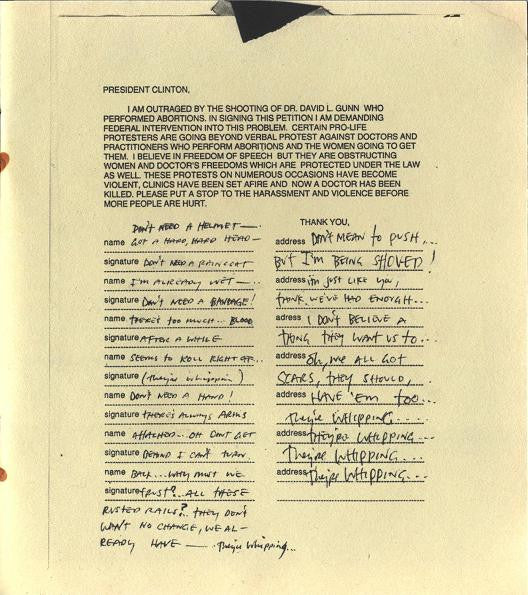 PRESIDENT CLINTON,
I AM OUTRAGED BY THE SHOOTING OF DR. DAVID L. GUNN WHO
PERFORMED ABORTIONS. IN SIGNING THIS PETITION I AM DEMANDING
FEDERAL INTERVENTION INTO THIS PROBLEM. CERTAIN PRO-LIFE
PROTESTERS ARE GOING BEYOND VERBAL PROTEST AGAINST DOCTORS AND
PRACTITIONERS WHO PERFORM ABORITIONS AND THE WOMEN GOING TO GET
THEM. I BELIEVE IN FREEDOM OF SPEECH BUT THEY ARE OBSTRUCTING
WOMEN AND DOCTOR'S FREEDOMS WHICH ARE PROTECTED UNDER THE LAW
AS WELL. THESE PROTESTS ON NUMEROUS OCCASIONS HAVE BECOME
VIOLENT, CLINICS HAVE BEEN SET AFIRE AND NOW A DOCTOR HAS BEEN
KILLED. PLEASE PUT A STOP TO THE HARASSMENT AND VIOLENCE BEFORE
MORE PEOPLE ARE HURT.
THANK YOU,
DON'T NEED A HELMET—
name GOT A HARD, HARD HEAD—
signature DON'T NEED A RAINCOAT
name I'M ALREADY WET—
signature DON'T NEED A BANDAGE!
name THERE'S TOO MUCH... BLOOD
signature AFTER A WHILE
name SEEMS TO ROLL RIGHT OFF...
signature (They're Whippin)
name DON'T NEED A HAND!
signature THERE'S ALWAYS ARMS
name ATTACHED... OH DON'T GET
signature BEHIND I CAN'T TURN
name BACK... WHY MUST WE
signature TRUST?.. ALL THESE
RUSTED RAILS?. THEY DON'T
WANT NO CHANGE, WE AL-
READY HAVE — They're Whipping...
address DON'T MEAN to PUSH,...
BUT I'M BEING SHOVED!
address i'm just like you,
THINK WE'VE HAD ENOUGH...
adress I DON'T BELIEVE A
THING THEY WANT US to...
address Oh, we ALL GOT
SCARS, THEY SHOULD,
address HAVE 'EM TOO...
They're WHIPPING....
address they're WHIPPING...
They're WHIPPING...
address They're WHIPPING...